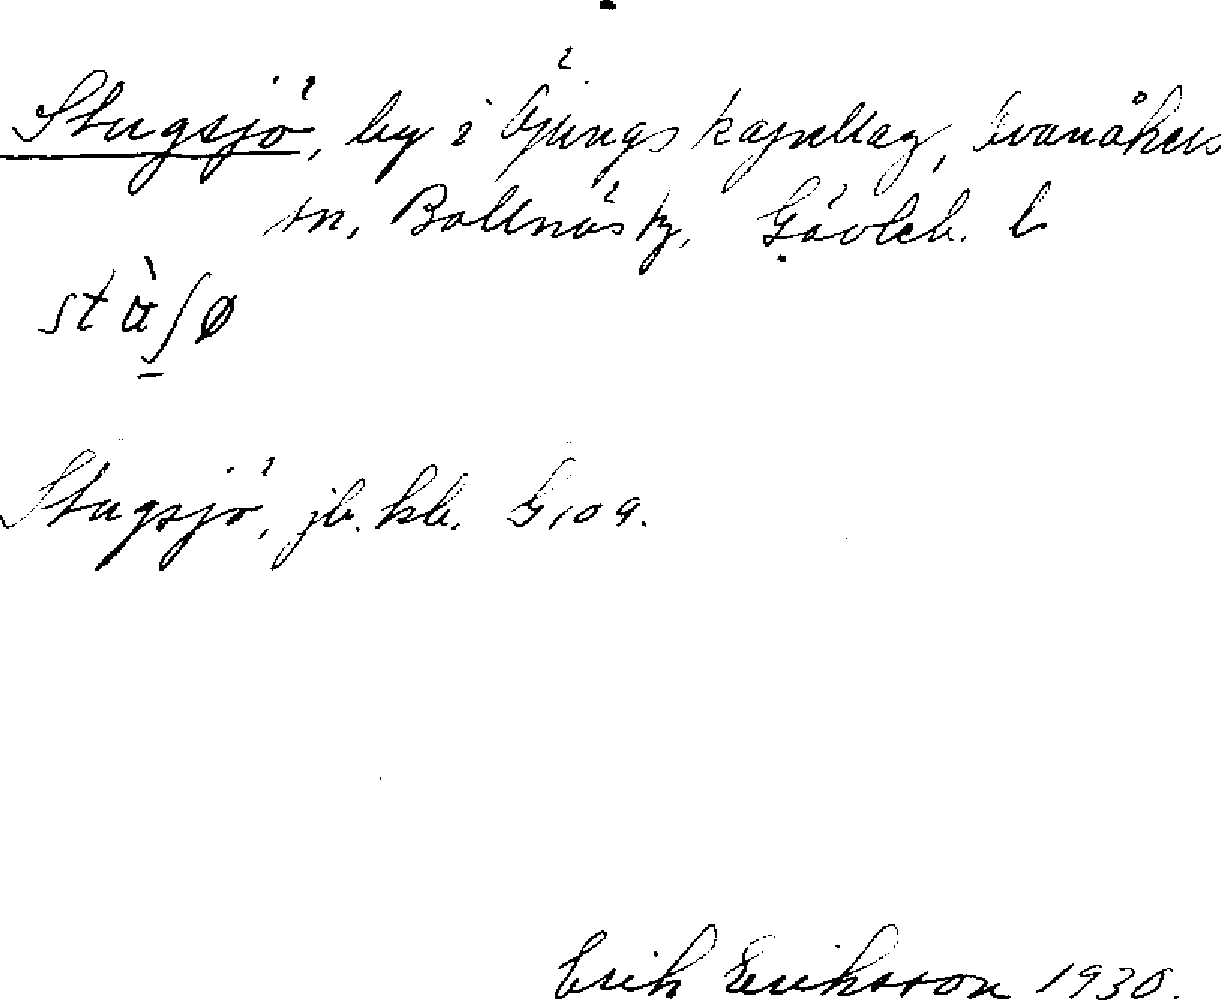 Stugsjö, by i Öjungs kapellag, Svanåkers
sn, Bollnäs tg, Gävleb. l
Stugsjö, jb. kb. G, o a.
Erik Eriksson 1930.